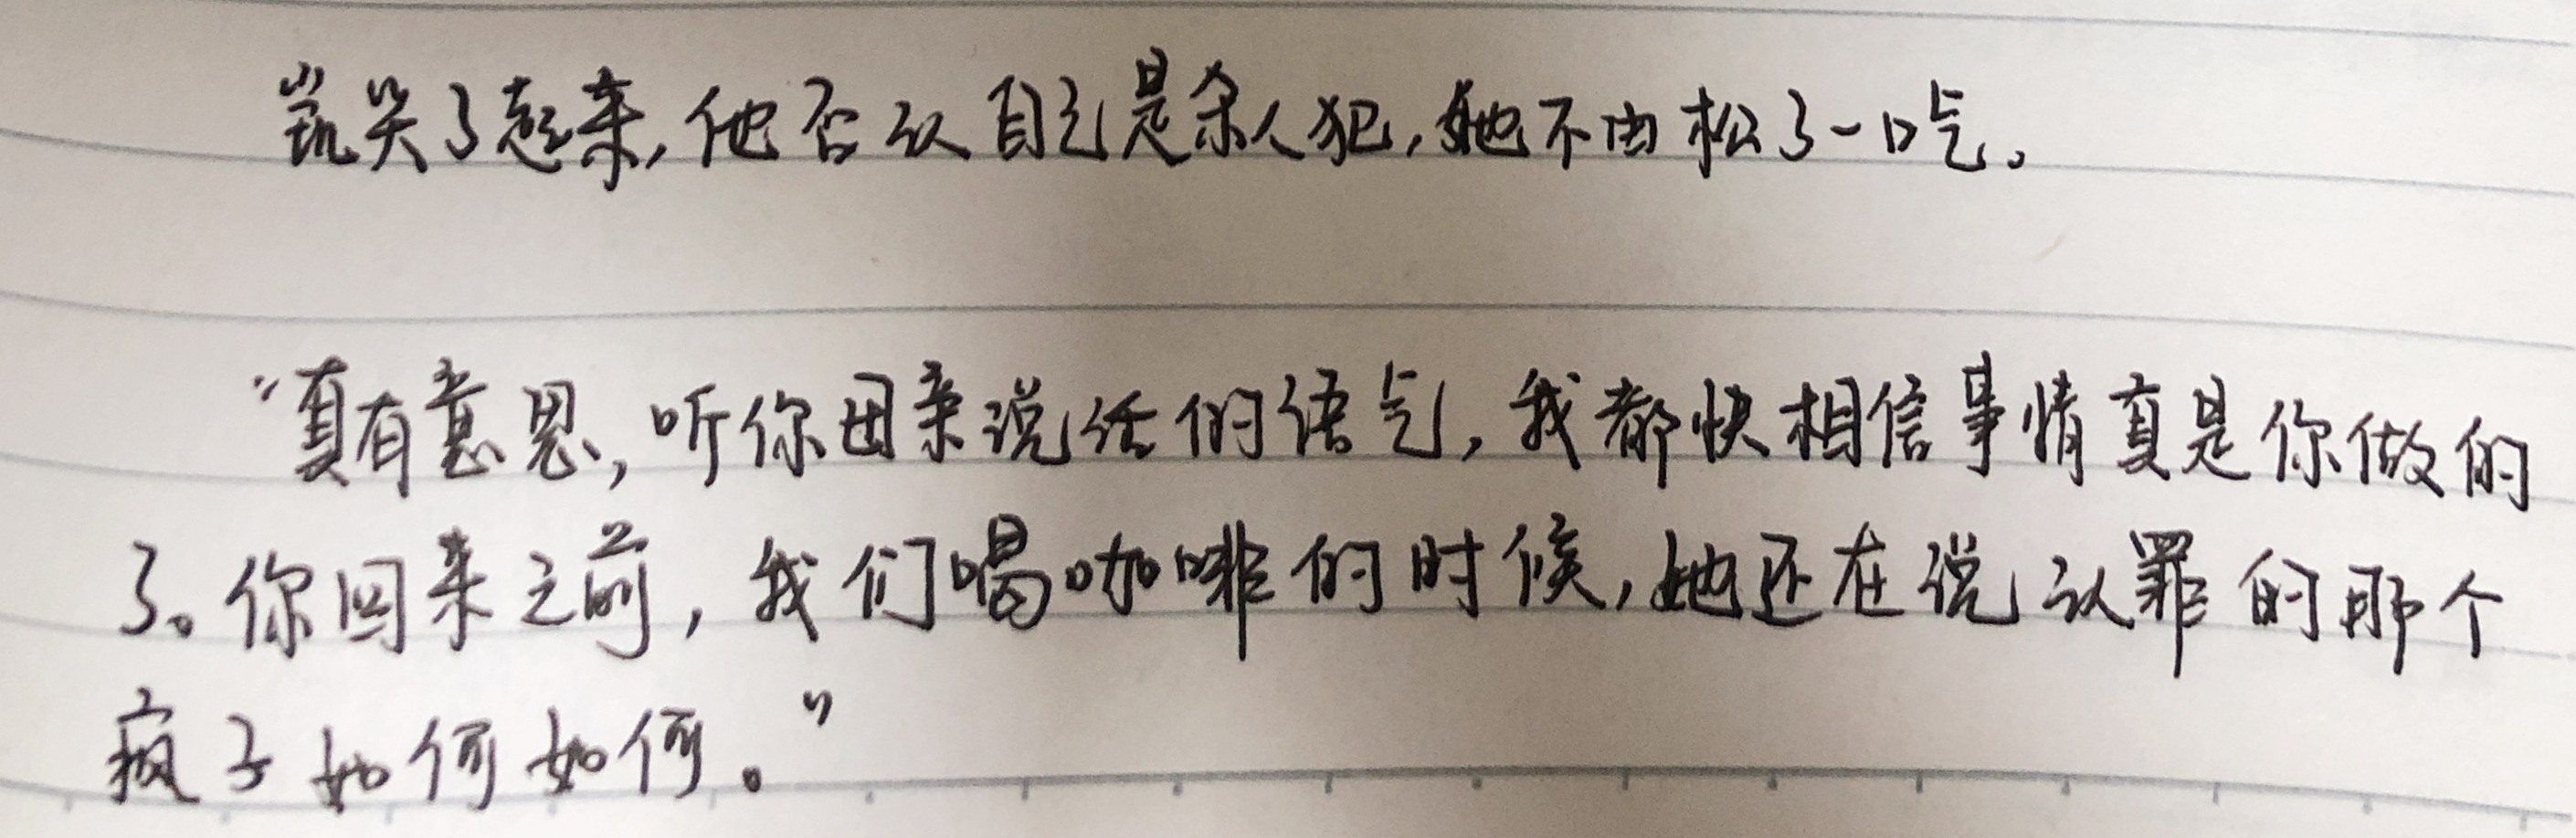 凯笑了起来，他否认自己是杀人犯，她不由松了一口气。
“真有意思，听你母亲说话的语气，我都快相信事情真是你做的
了。你回来之前，我们喝咖啡的时候，她还在说认罪的那个
疯子如何如何。”